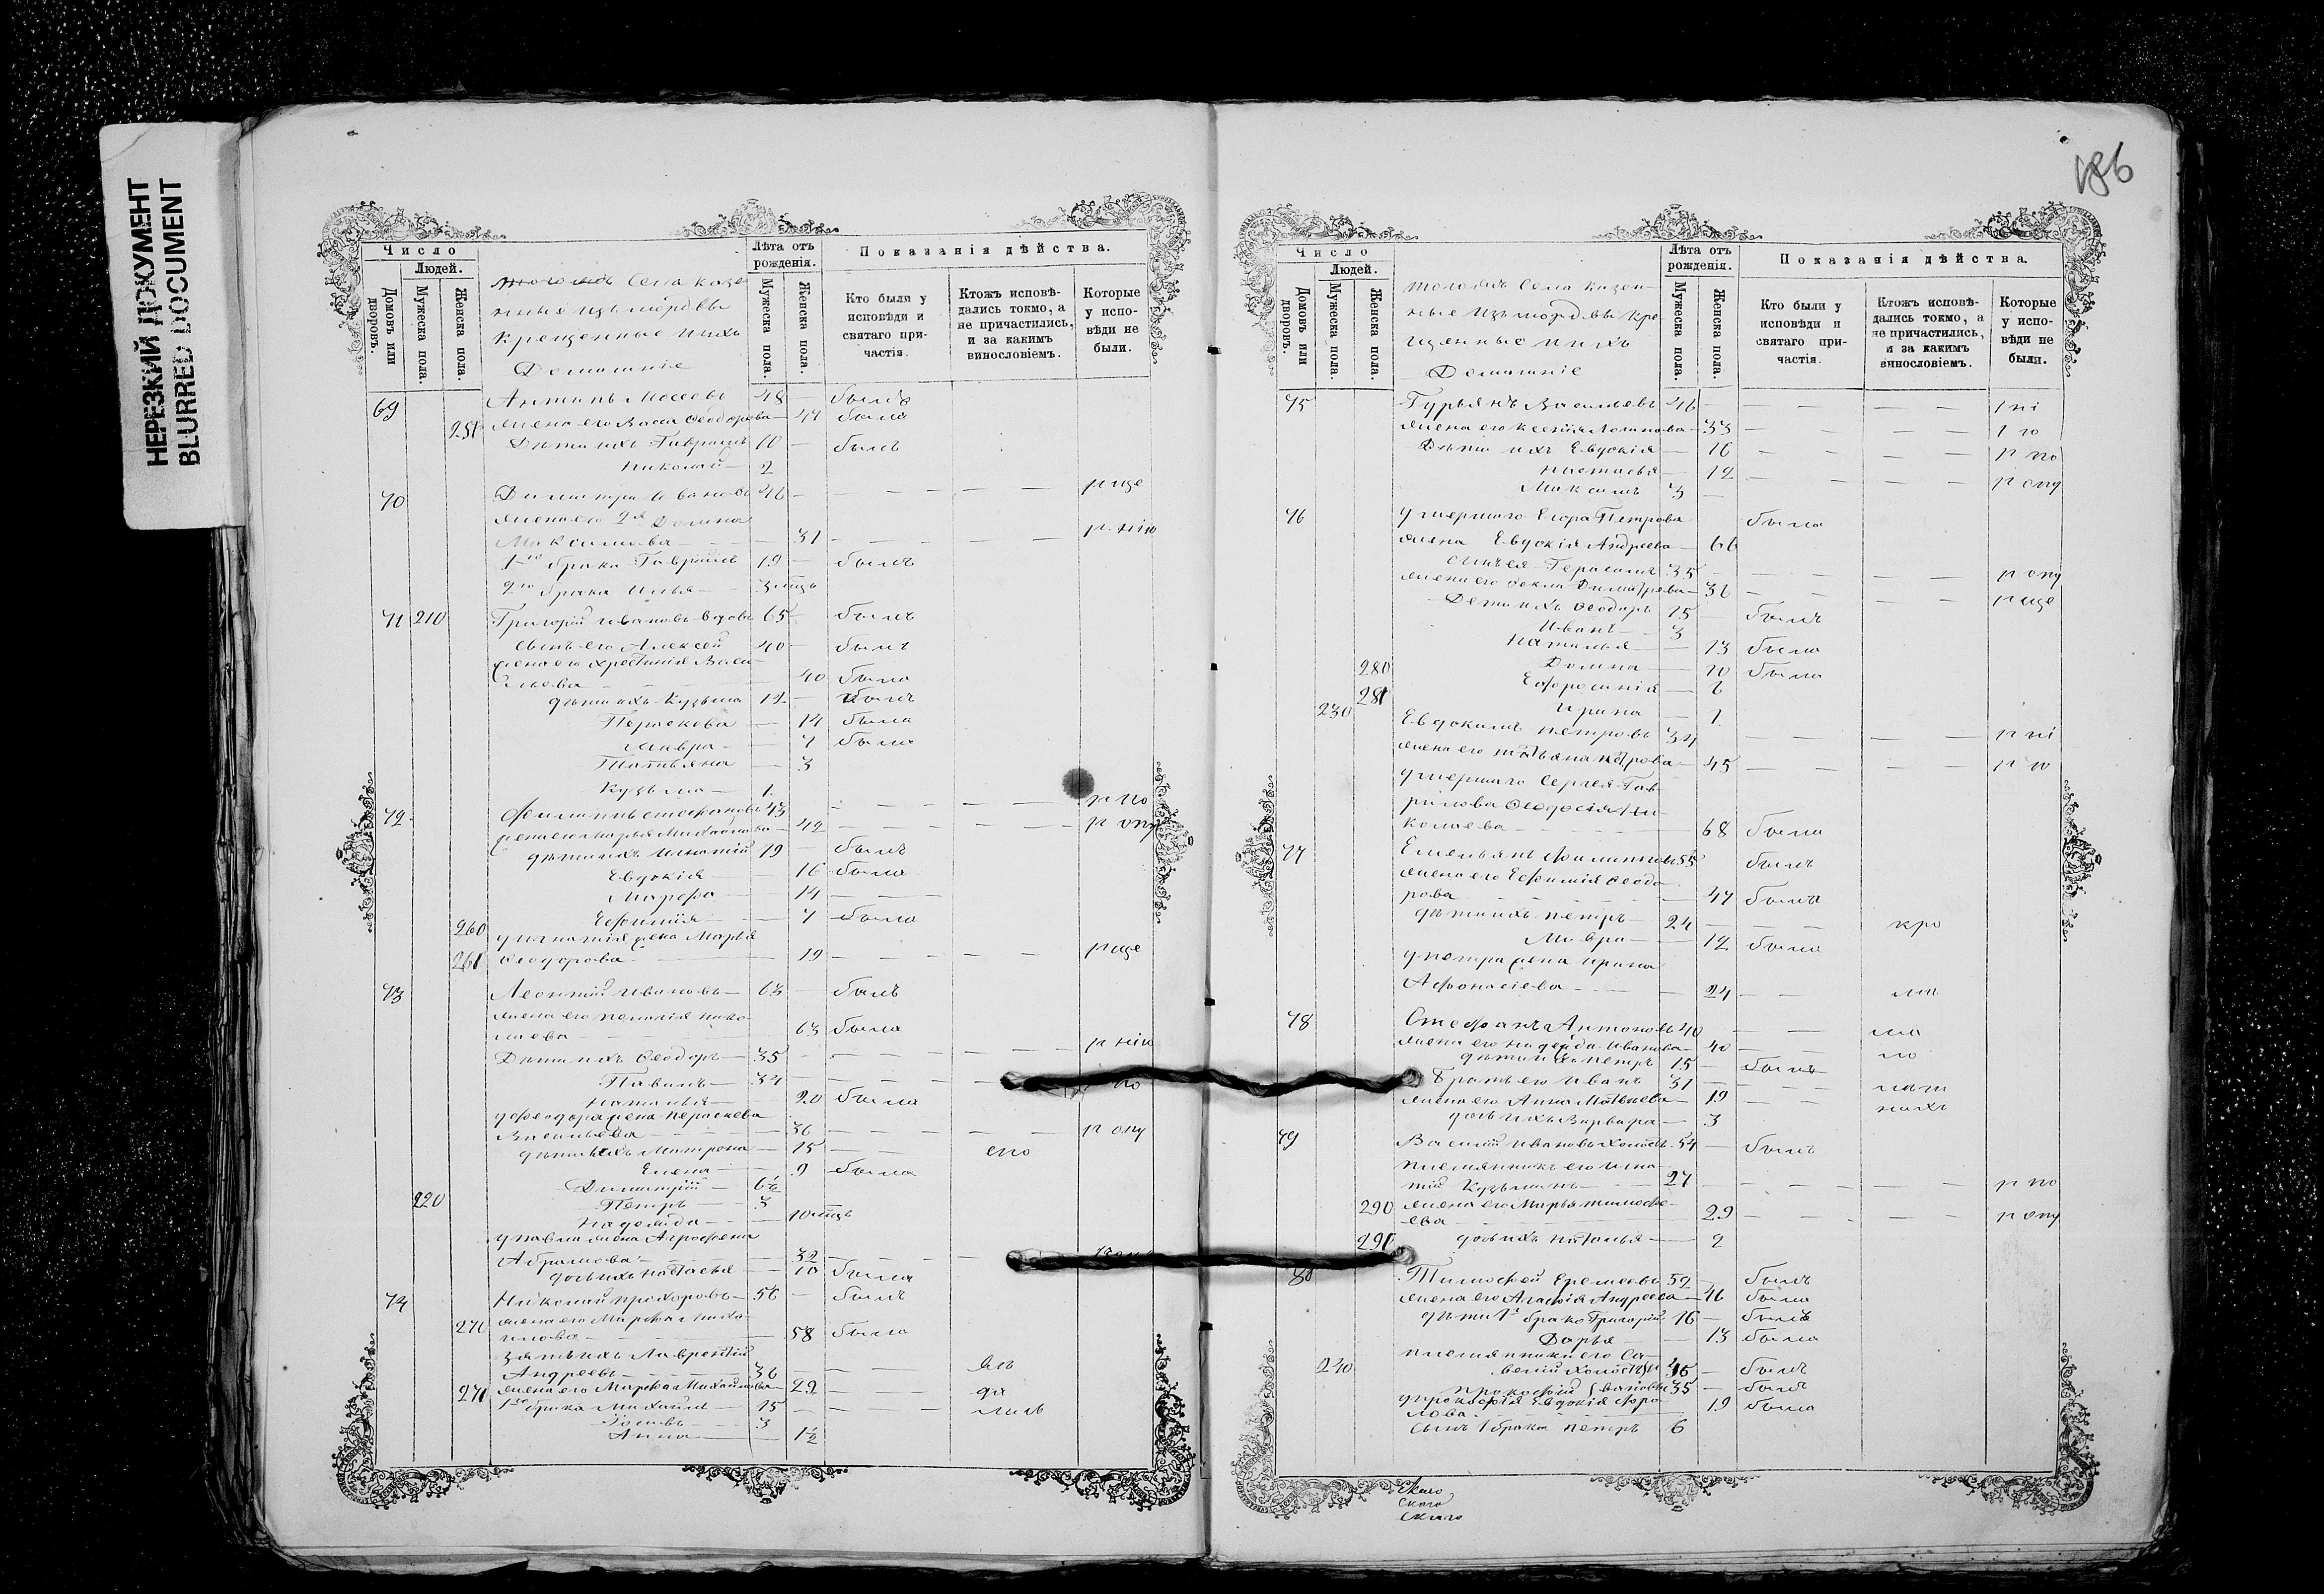 НЕРЕЗКИЙ ДОКУМЕНТ
BLURRED DOCUMENT
186
Число
Людей.
Домовъ или дворовъ.
Мужеска пола.
Женска пола.
тогожъ Села казе
нные изъ мордвы
крещенные и ихъ
Домашніе
Лѣта отъ рожденія.
Мужеска пола.
Женска пола.
Показанія дѣйства.
Кто были у исповѣди и святаго причастія.
Ктожъ исповѣдались токмо, а не причастились, и за какимъ винословіемъ.
Которые у исповѣди не были.
69 Антипъ Мосеевъ 48 — былъ
251 жена его Васса Феодорова — 47 была
Дѣти ихъ Гаврiилъ 10 — былъ
Николай — 2
70 Димитрiй Ивановъ 46 — — — — — р ще
жена его 2я Домна
Максимова — — — 31 — — — — р нію
1го брака Гаврiилъ 19 — былъ
2го брака Илья — 3 мцъ
71 210 Григорій Ивановъ вдовъ 65 — былъ
сынъ его Алексей 40 — былъ
жена его Христинія Васи-
льева — 40 была
дѣти ихъ Кузьма 12 — былъ
Параскева — 14 была
Мавра — 7 была
Татьяна — 3
Кузьма — 1.
72. Филиппъ Стефановъ 43 — — — — р по
жена его Марья Михайлова — 42 — — — — р опу
дѣти ихъ Игнатій 19 — былъ
Евдокія — 16 была
Марфа — 14 — — —
260 Ефимія — 7 была
у Игнатія жена Марья
261 Феодорова — 19 — — — — р ще
73 Леонтій Ивановъ — 63 — былъ
жена его Пелагія Нико-
лаева — 63 была
Дѣти ихъ Феодоръ — 35 — — — — р нію
Павелъ — 34 — — — — по
Наталья — 20 была
у Феодора жена Параскева
Васильева — 36 — — — — р опу
дѣти ихъ Матрена — 15 — — сто
Елена — 9 была
Димитрій — 6½
220 Петръ — 3
Надежда — 10 мцъ
у Павла жена Агрофена
Абрамова — 32 — —
дочь ихъ Настасья — 10 была
74 Николай Прохоровъ — 56 — былъ
270 жена его Марфа Михай-
лова — 58 была
зять ихъ Лаврентій
Андреевъ — 36 — — —
271 жена его Марфа Михайлова — 22 — да
1го брака Михаилъ — 15 — — —
Іосивъ — 3
Анна — 1½
Число
Людей.
Домовъ или дворовъ.
Мужеска пола.
Женска пола.
тогожъ Села казен-
ные изъ мордвы кре-
щенные и ихъ
Домашніе
Лѣта отъ рожденія.
Мужеска пола.
Женска пола.
Показанія дѣйства.
Кто были у исповѣди и святаго причастія.
Ктожъ исповѣдались токмо, а не причастились, и за какимъ винословіемъ.
Которые у исповѣди не были.
75 Гурьянъ Васильевъ 46 — — — —
жена его Ксенія Логинова — 33 — — — —
Дѣти ихъ Евдокія — 16 — — — — р по
Настасья — 12 — — — — р опу
Максимъ 3 —
76 умершаго Егора Петрова
жена Евдокія Андреева — 66 была
сынъ ея Герасимъ 35 — — — — р опу
жена его Фекла Димитрева — 36 — — — — р ще
Дети ихъ Феодоръ 15 — былъ
Иванъ — 3
Наталья — 13 была
280 Домна — 10 была
281 Ефросинія — 6
230 Ирина — 1
Евдокимъ Петровъ 34 — — — — р ні
жена его Татьяна Петрова — 45 — — — — р ю
умершаго Сергея Гав-
рилова Феодосія Ни-
колаева — — 68 была
77 Емельянъ Филипповъ 55 былъ
жена его Ефимія Феодо
рова — — 47 была
дѣти ихъ Петръ — 24 — — — кро
Мавра — 12 была
у Петра жена Ирина
Афонасіева — — 24 — — ли
78 Стефанъ Антоновъ 40 — — ма
жена его Надежда Иванова — 40 — — ло
дѣти ихъ Петръ 15 — былъ
братъ его Иванъ 31 — — —
жена его Анна Матвеева — 19 — —
дочь ихъ Варвара — 3 нихъ
79 Василій Ивановъ холостъ 54 — былъ
племянникъ его Игна-
тій Кузьминъ — 27 — — — — р по
290 жена его Марья Тимофе-
ева — — 29 — — — — р опу
291 дочь ихъ Наталья — 2
80 Тимофей Еремеевъ 52 — былъ
жена его Агафія Андреева — 46 была
дѣти 1 брака Григорій 16 — былъ
Дарья — 13 была
племянники его Са-
240 велій холостъ 36 — былъ
Прокофій Ивановъ 35 — былъ
у Прокофія Евдокія Фро-
лова — 19 была
сынъ 1 брака Петръ 6
скаго
скаго
скаго